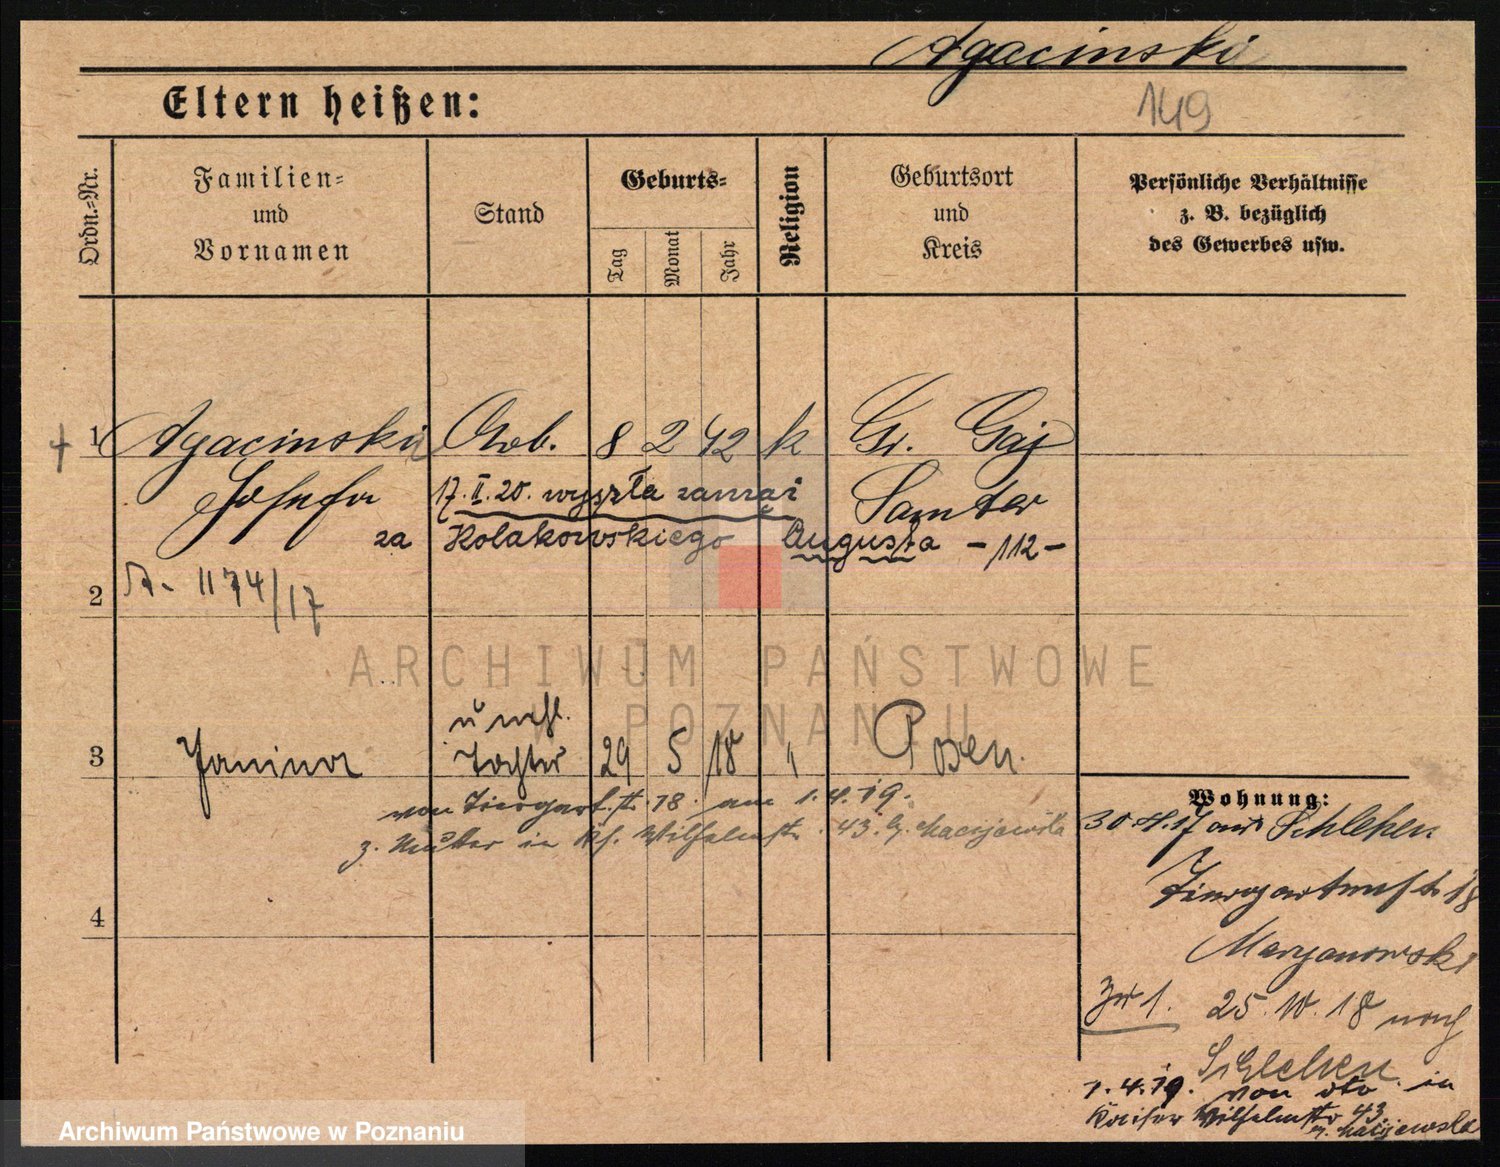 Agacinski
149
Eltern heißen:
Ordn.-Nr.
Familien- und Vornamen
Stand
Geburts-
Tag
Monat
Jahr
Religion
Geburtsort und Kreis
Persönliche Verhältnisse z. B. bezüglich des Gewerbes usw.
1 Agacinski Arb. 8 2 42 k Gr. Gaj
Josefa 17.II.20. wyszła zamąż Samter
za Kołakowskiego Augusta -112-
2 A. 1174/17
ARCHIWUM PAŃSTWOWE
W POZNANIU
unehl.
3 Janina Tochter 29 5 18 " Posen.
von Tiergart.str. 18. am 1.4.19.
z. Mutter in Ks. Wilhelmstr. 43. b. Maciejewska
4
Wohnung:
30.4.17 aus Schlehen
Tiergartenstr 18
Maryanowski
Zu 1. 25.10.18 nach
Schlehen
1.4.19. von dto in
Kaiser Wilhelmstr 43
Maciejewska
Archiwum Państwowe w Poznaniu